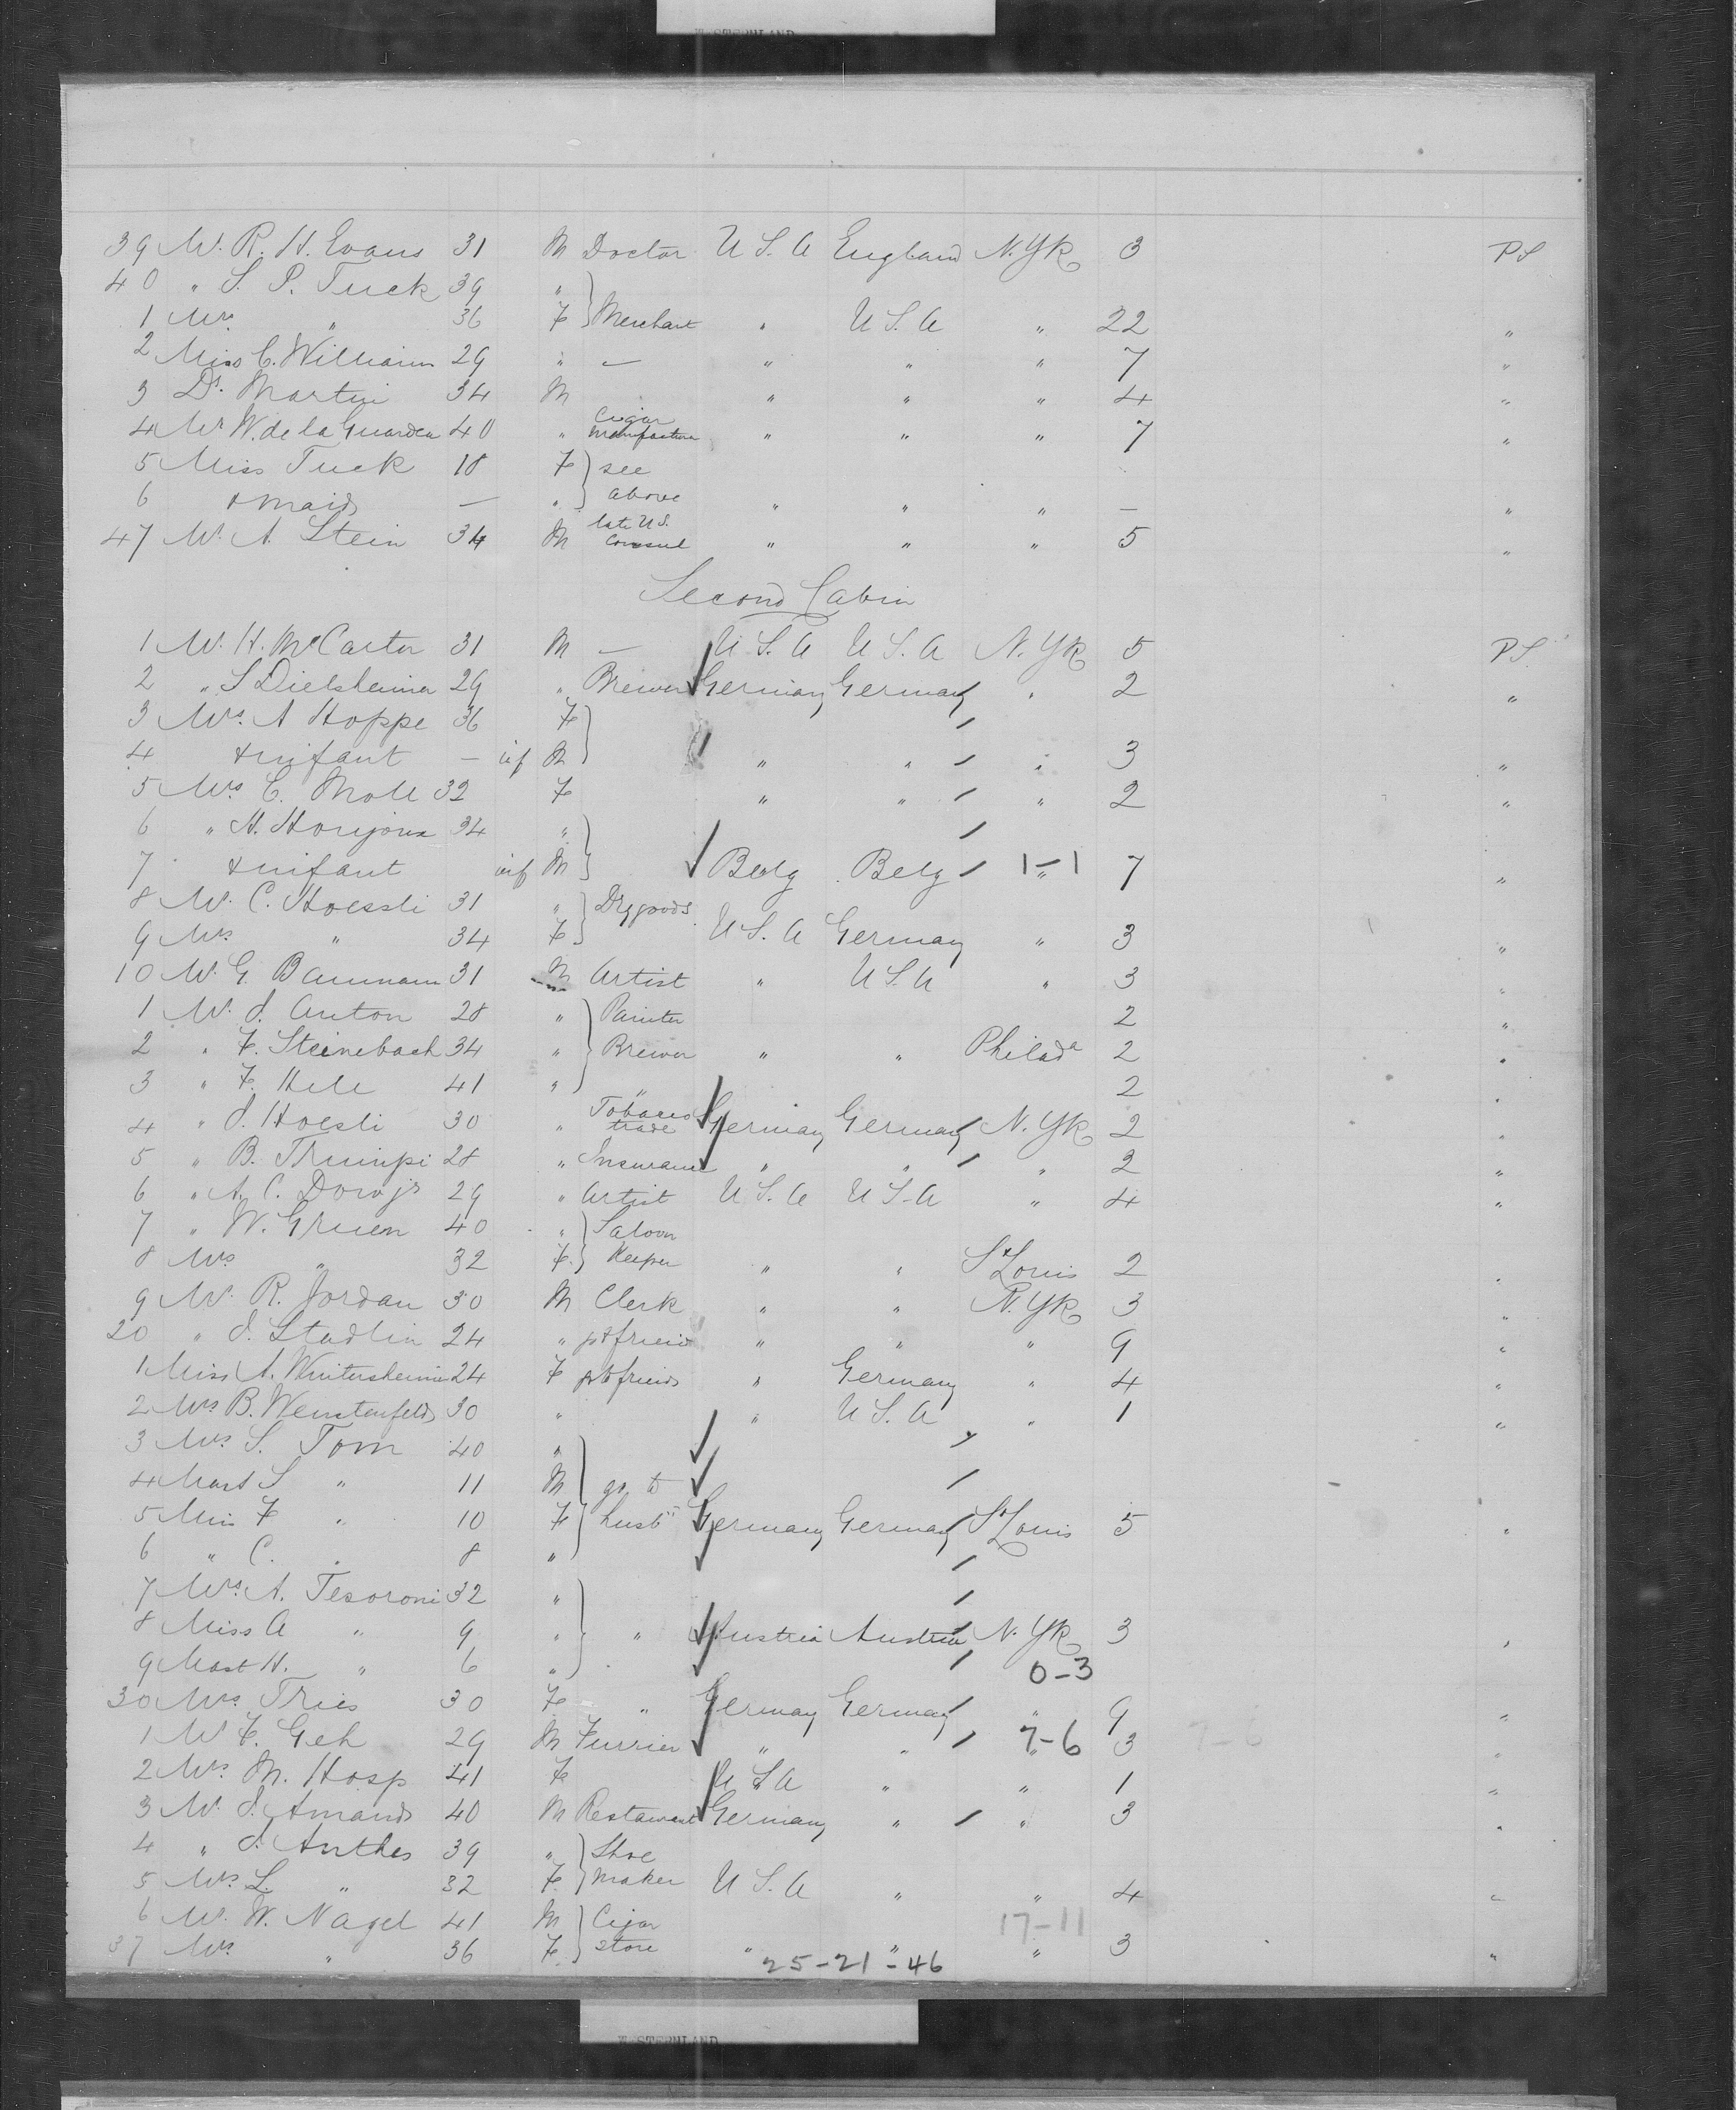 WESTERNLAND
39 Mr. R. H. Evans 31 M Doctor U S. A England N. Yk 3 PS
40 " S. P. Tuck 39 "
1 Mrs " 36 F Merchant " U S. A " 22 "
2 Miss C. Williams 29 " — " " " 7 "
3 Dr. Martin 34 M " " " 4 "
4 Mr W. de la Guardea 40 " Cigar manufacture " " " 7 "
5 Miss Tuck 18 F see
6 & maid — " above " " " — "
47 Mr. A. Stein 34 M late U S. Consul " " " 5 "
Second Cabin
1 Mr. H. McCarter 31 M — U S. A U S. A N. Yk 5 PS.
2 " S Dielsheimer 29 " Brewer Germany Germany " 2 "
3 Mrs. A Hoppe 36 F
4 & infant — inf M " " " 3 "
5 Mrs C. Moll 32 F " " " 2 "
6 " H. 34 "
7 & infant inf M Belg Belg 1-1 " 7 "
8 Mr. C. Hoessli 31 " Drygoods
9 Mrs " 34 F U S. A Germany " 3 "
10 Mr. G. Baumann 31 M Artist " U S. A " 3 "
1 Mr. J. Anton 28 " Painter 2 "
2 " F. Steinebach 34 " Brewer " " Philada 2 "
3 " F. Hele 41 " " 2 "
4 " J. Hoesli 30 " Tobacco trade Germany Germany N. Yk 2 "
5 " B. Trumpi 28 " Insurance " " " 2 "
6 " A. C. 29 " Artist U S. A U S. A " 4 "
7 " W. Gruen 40 " Saloon
8 Mrs " 32 F Keeper " " St Louis 2 "
9 Mr. R. Jordan 30 M Clerk " " N. Yk 3 "
20 " J. Stadlin 24 " friend " " " 9 "
1 Miss A. Wintersheim 24 F friends " Germany " 4 "
2 Mrs B. 30 " " U S. A " 1 "
3 Mrs S. Tom 40 "
4 Mast S " 11 M go to
5 Miss F " 10 F husbd Germany Germany St Louis 5 "
6 " C. " 8 "
7 Mrs. A. Tesoroni 32 "
8 Miss A " 9 " " Austria Austria N. Yk 3 "
9 Mast H. " 6 " 0-3
30 Mrs Tries 30 F " Germany Germany " 9 "
1 Mr F. Geh 29 M Furrier " " 7-6 " 3 7-6 "
2 Mrs. M. Hosp 41 F U S A " " 1 "
3 Mr. J. Amand 40 M Restaurant Germany " " 3 "
4 " J. Anthes 39 " Shoe
5 Mrs L. " 32 F maker U S. A " " 4 "
6 Mr. W. Nagel 41 M Cigar 17-11
37 Mrs " 36 F store " " " 3 "
25-21-46
WESTERNLAND